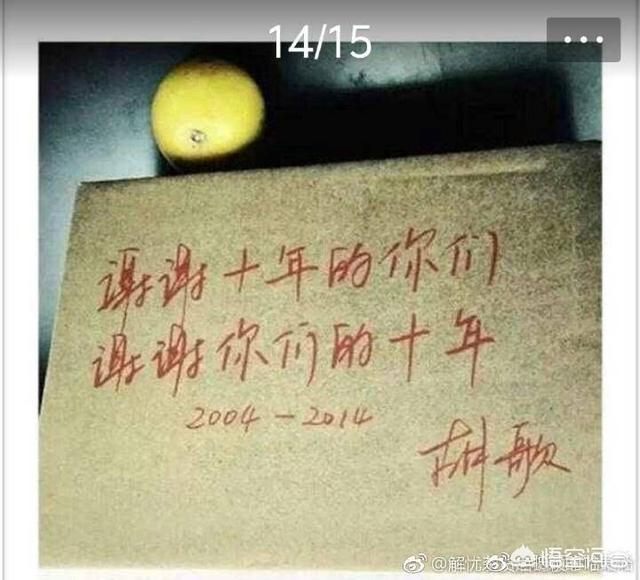 14/15
谢谢十年的你们
谢谢你们的十年
2004-2014
胡歌